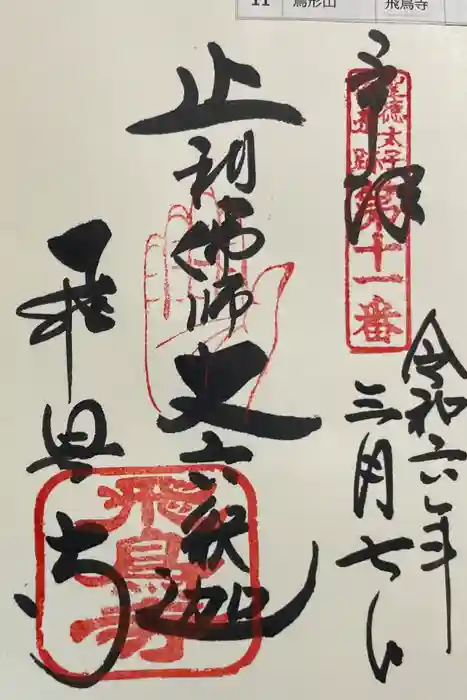 11 鳥形山 飛鳥寺
奉拝
聖徳太子
遺跡
第十一番
令和六年
三月七日
止利佛師
丈六釈迦
飛鳥寺
飛鳥寺